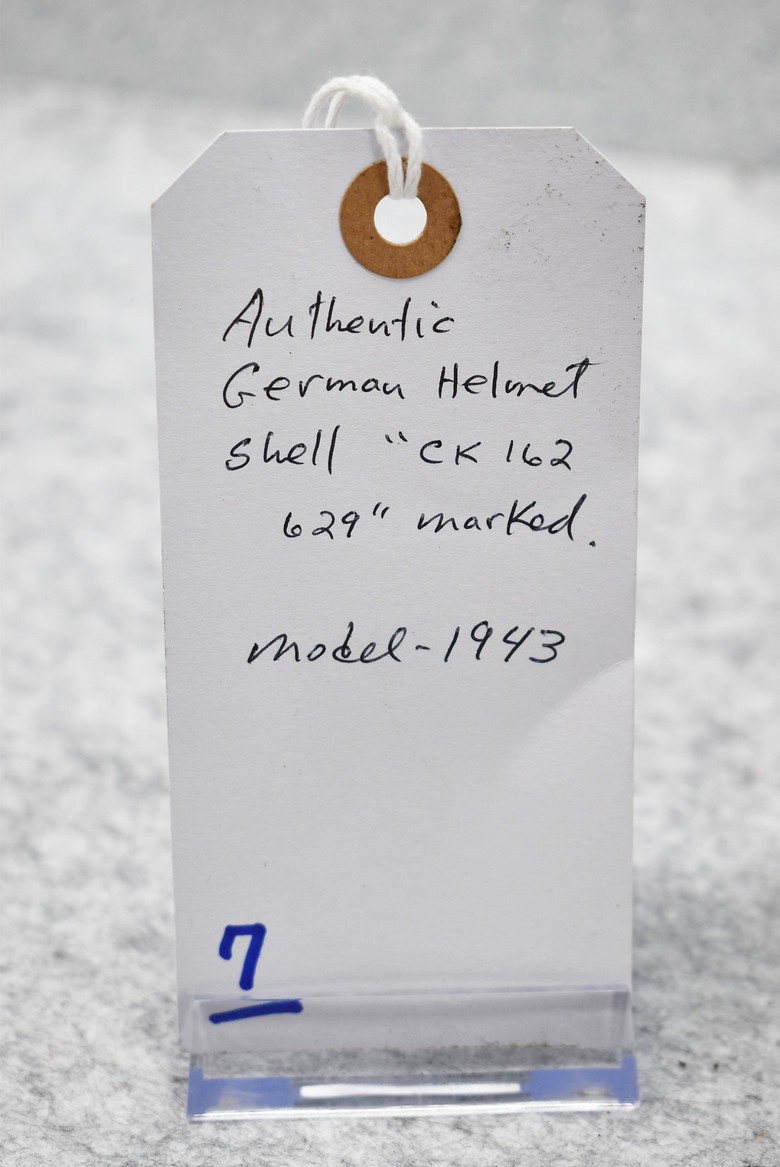 Authentic
German Helmet
shell "CK 162
629" marked.
model-1943
7